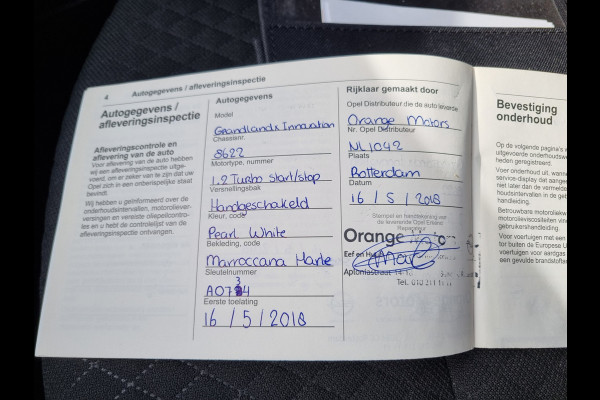 4 Autogegevens / afleveringsinspectie
Autogegevens /
afleveringsinspectie
Afleveringscontrole en
aflevering van de auto
Voor aflevering van de auto hebben
wij een afleveringsinspectie uitge-
voerd, om er zeker van te zijn dat uw
Opel zich in een onberispelijke staat
bevindt.
Wij hebben u geïnformeerd over de
onderhoudsintervallen, motoroliever-
versingen en vereiste oliepeilcontro-
les en u hebt de controlelijst van de
afleveringsinspectie ontvangen.
Autogegevens
Model
Grandlandx Innovation
Chassisnr.
8622
Motortype, nummer
1.2 Turbo start/stop
Versnellingsbak
Handgeschakeld
Kleur, code
Pearl White
Bekleding, code
Marroccana Harde
Sleutelnummer
Eerste toelating
16 / 5 / 2018
Rijklaar gemaakt door
Opel Distributeur die de auto leverde
Orange Motors
Nr. Opel Distributeur
NL1042
Plaats
Rotterdam
Datum
16 / 5 / 2018
Stempel en handtekening van
de leverende Opel Erkend
Reparateur
Orange
Eef en
Tel.
Bevestiging
onderhoud
Op de volgende pagina's
uitgevoerde onderhoudsw
heden geregistreerd.
Voer onderhoud uit, wanne
service-display dat aange
niet later dan de vermelde
houdsintervallen in de geb
handleiding.
Betrouwbare motorolieke
motorolieviscositeiten vin
gebruikershandleiding.
Voor voertuigen met een
tor buiten de Europese U
voor voertuigen met eerdgas
een gevulde brandstoftan